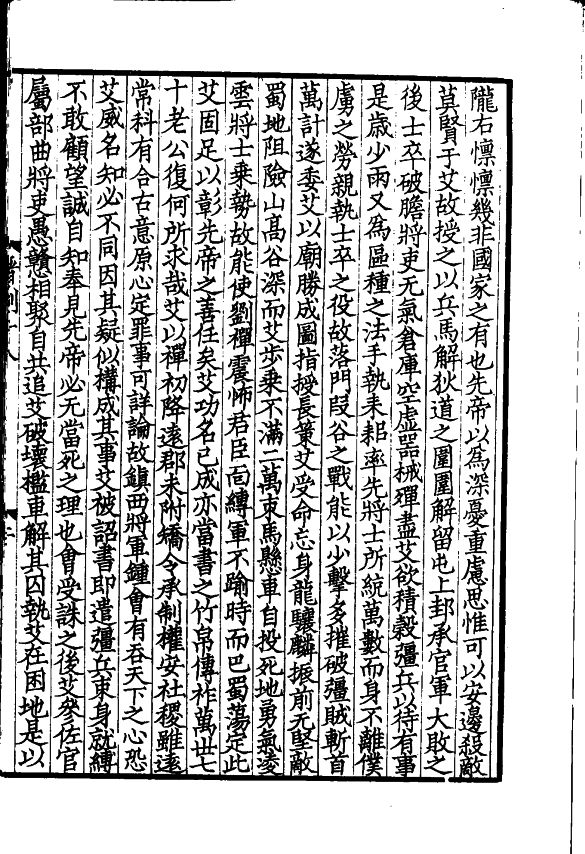 隴右懍懍幾非國家之有也先帝以為深憂重慮思惟可以安邊殺敵
莫賢于艾故授之以兵馬解狄道之圍圍解留屯上邽承官軍大敗之
後士卒破膽將吏无氣倉庫空虛器械殫盡艾欲積穀彊兵以待有事
是歲少雨又為區種之法手執耒耜率先將士所統萬數而身不離僕
虜之勞親執士卒之役故落門段谷之戰能以少擊多摧破彊賊斬首
萬計遂委艾以廟勝成圖指授長策艾受命忘身龍驤麟振前无堅敵
蜀地阻險山高谷深而艾步乗不滿二萬束馬懸車自投死地勇氣凌
雲將士乗勢故能使劉禪震怖君臣面縛軍不踰時而巴蜀蕩定此
艾固足以彰先帝之善任矣艾功名已成亦當書之竹帛傳祚萬世七
十老公復何所求哉艾以禪初降遠郡未附矯令承制權安社稷雖遠
常科有合古意原心定罪事可詳論故鎮西將軍鍾會有吞天下之心恐
艾威名知必不同因其疑似構成其事艾被詔書即遣彊兵束身就縛
不敢顧望誠自知奉見先帝必无當死之理也會受誅之後艾參佐官
屬部曲將吏愚戇相聚自共追艾破壞檻車解其囚執艾在困地是以